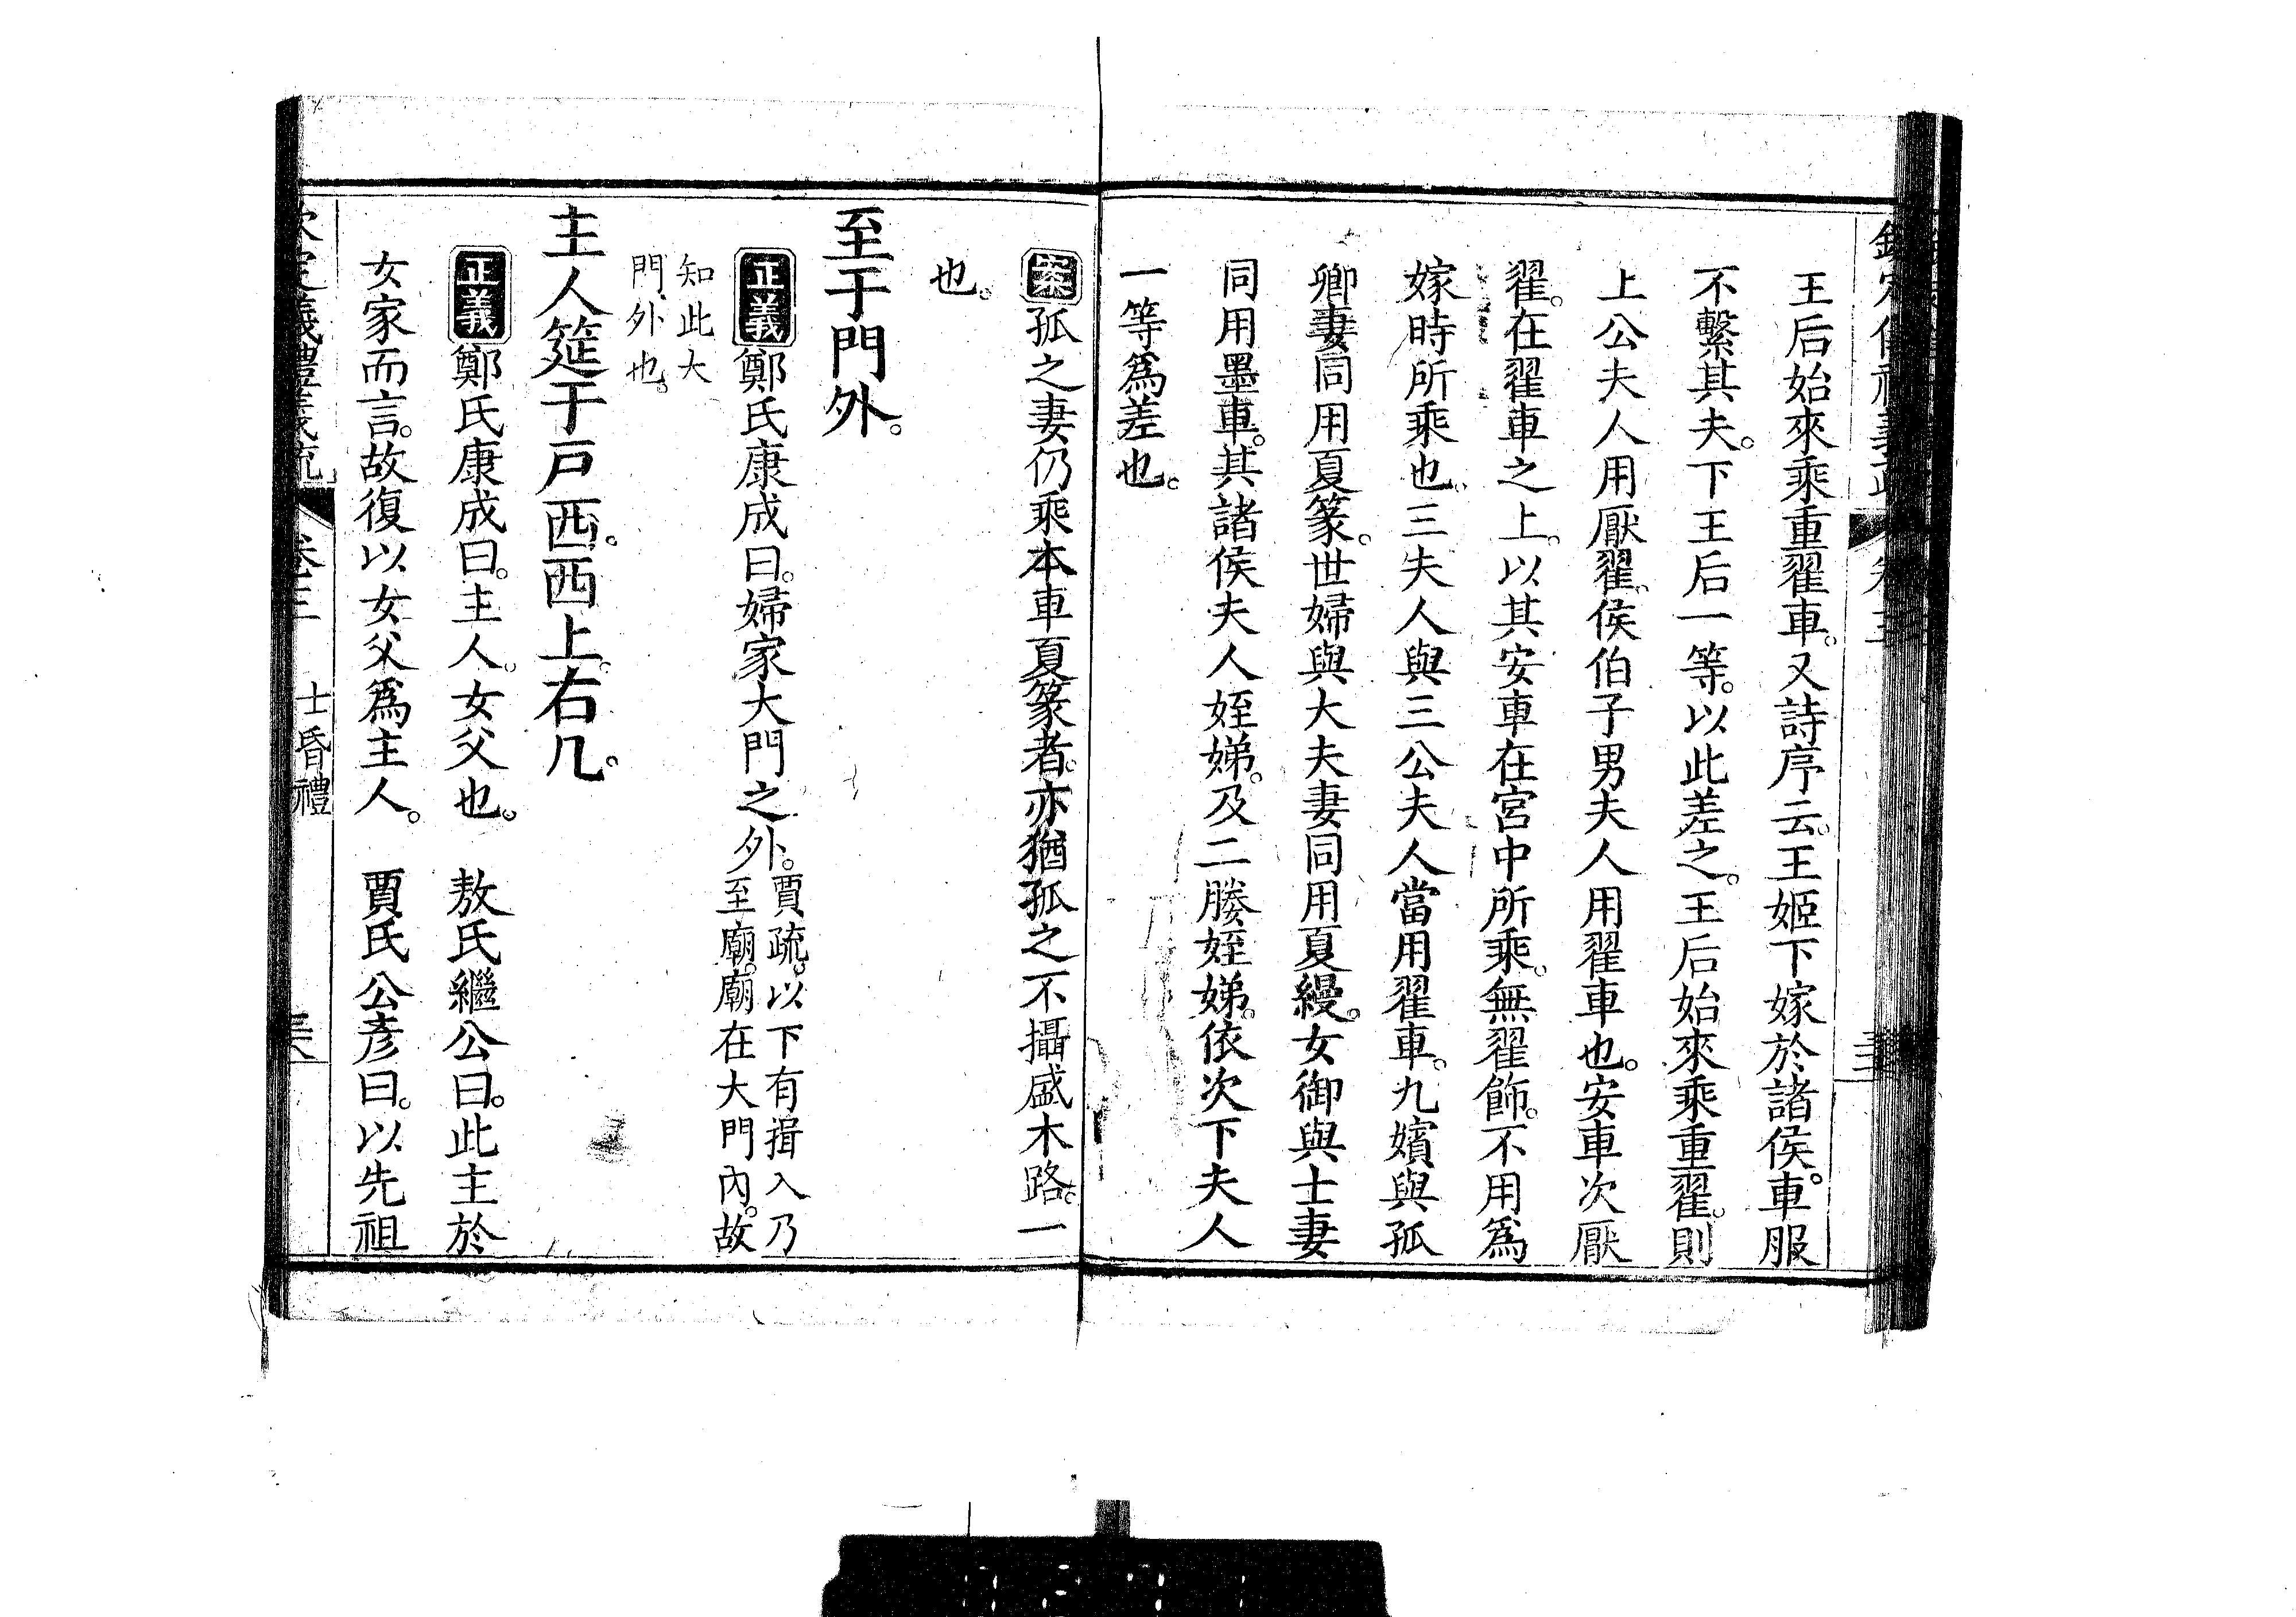 王后始來乘重翟車。又詩序云。王姬下嫁於諸侯。車服
不繫其夫。下王后一等。以此差之。王后始來乘重翟。則
上公夫人用厭翟。侯伯子男夫人用翟車也。安車次厭
翟。在翟車之上。以其安車在宮中所乘。無翟飾。不用爲
嫁時所乘也。三夫人與三公夫人當用翟車。九嬪與孤
卿妻同用夏篆。世婦與大夫妻同用夏縵。女御與士妻
同用墨車。其諸侯夫人姪娣。及二媵姪娣。依次下夫人
一等爲差也。
案孤之妻仍乘本車夏篆者。亦猶孤之不攝盛木路。一
也。
至于門外。
正義鄭氏康成曰。婦家大門之外。賈疏。以下有揖入乃
至廟。廟在大門內。故
知此大
門外也。
主人筵于戶西。西上。右几。
正義鄭氏康成曰。主人。女父也。 敖氏繼公曰。此主於
女家而言。故復以女父爲主人。 賈氏公彥曰。以先祖
欽定儀禮義疏 卷三 士昏禮